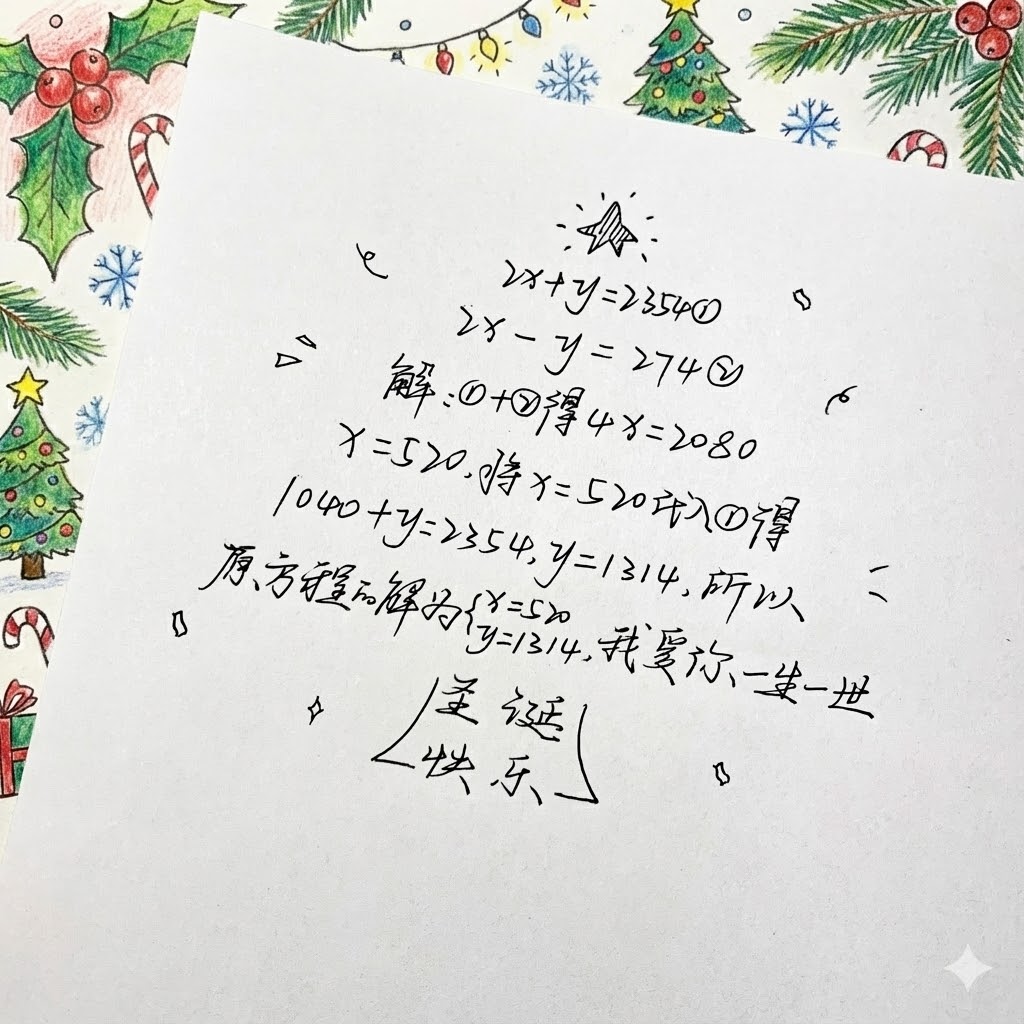 2x+y=2354①
2x-y=274②
解:①+②得4x=2080
x=520,将x=520代入①得
1040+y=2354,y=1314,所以
原方程的解为{x=520
y=1314,我爱你一生一世
圣诞
快乐